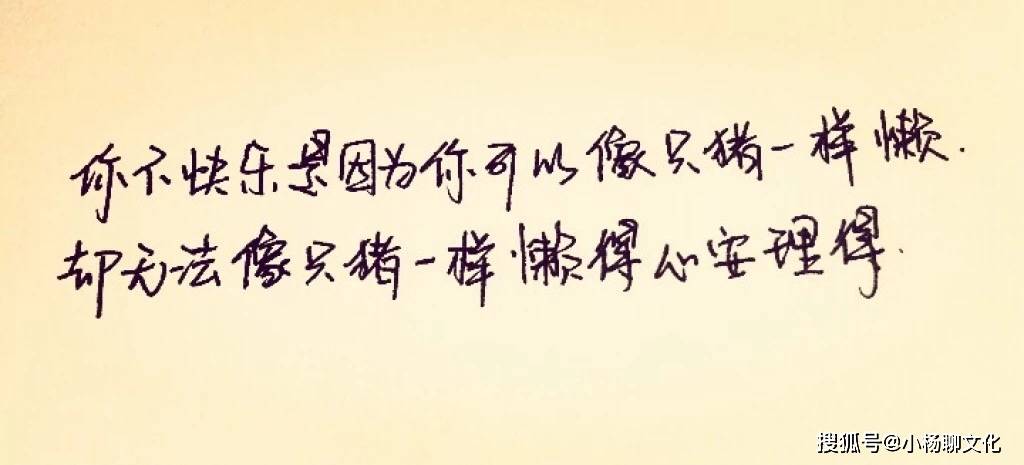 你不快乐是因为你可以像只猪一样懒.
却无法像只猪一样懒得心安理得.
搜狐号@小杨聊文化